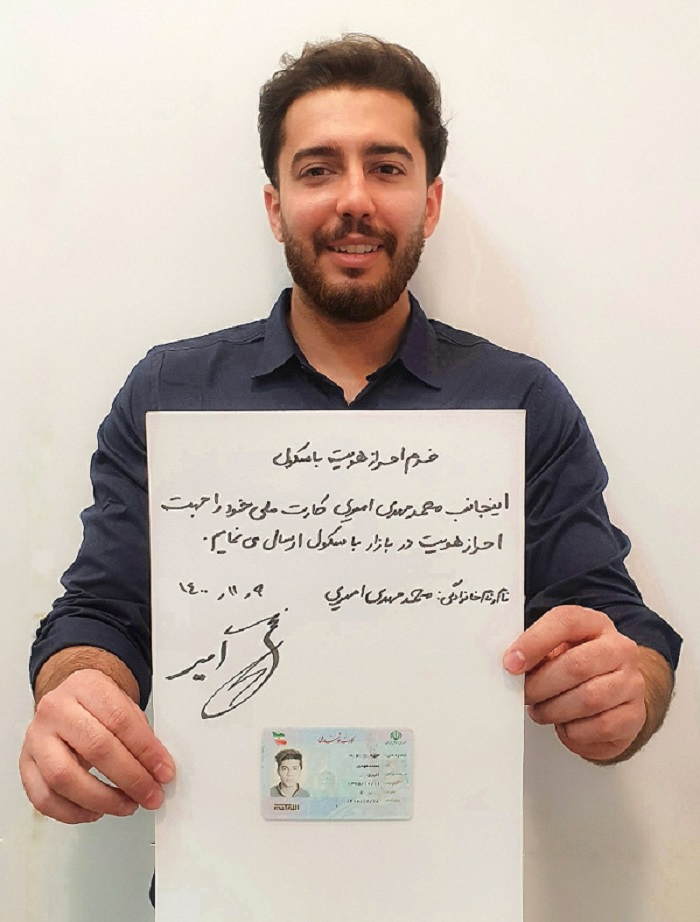 فرم احراز هویت باسکول
اینجانب محمدمهدی امیری کارت ملی خود را جهت
احراز هویت در بازار باسکول ارسال می نمایم.
نام و نام خانوادگی: محمدمهدی امیری
۱۴۰۰،۱۱،۹
امیر